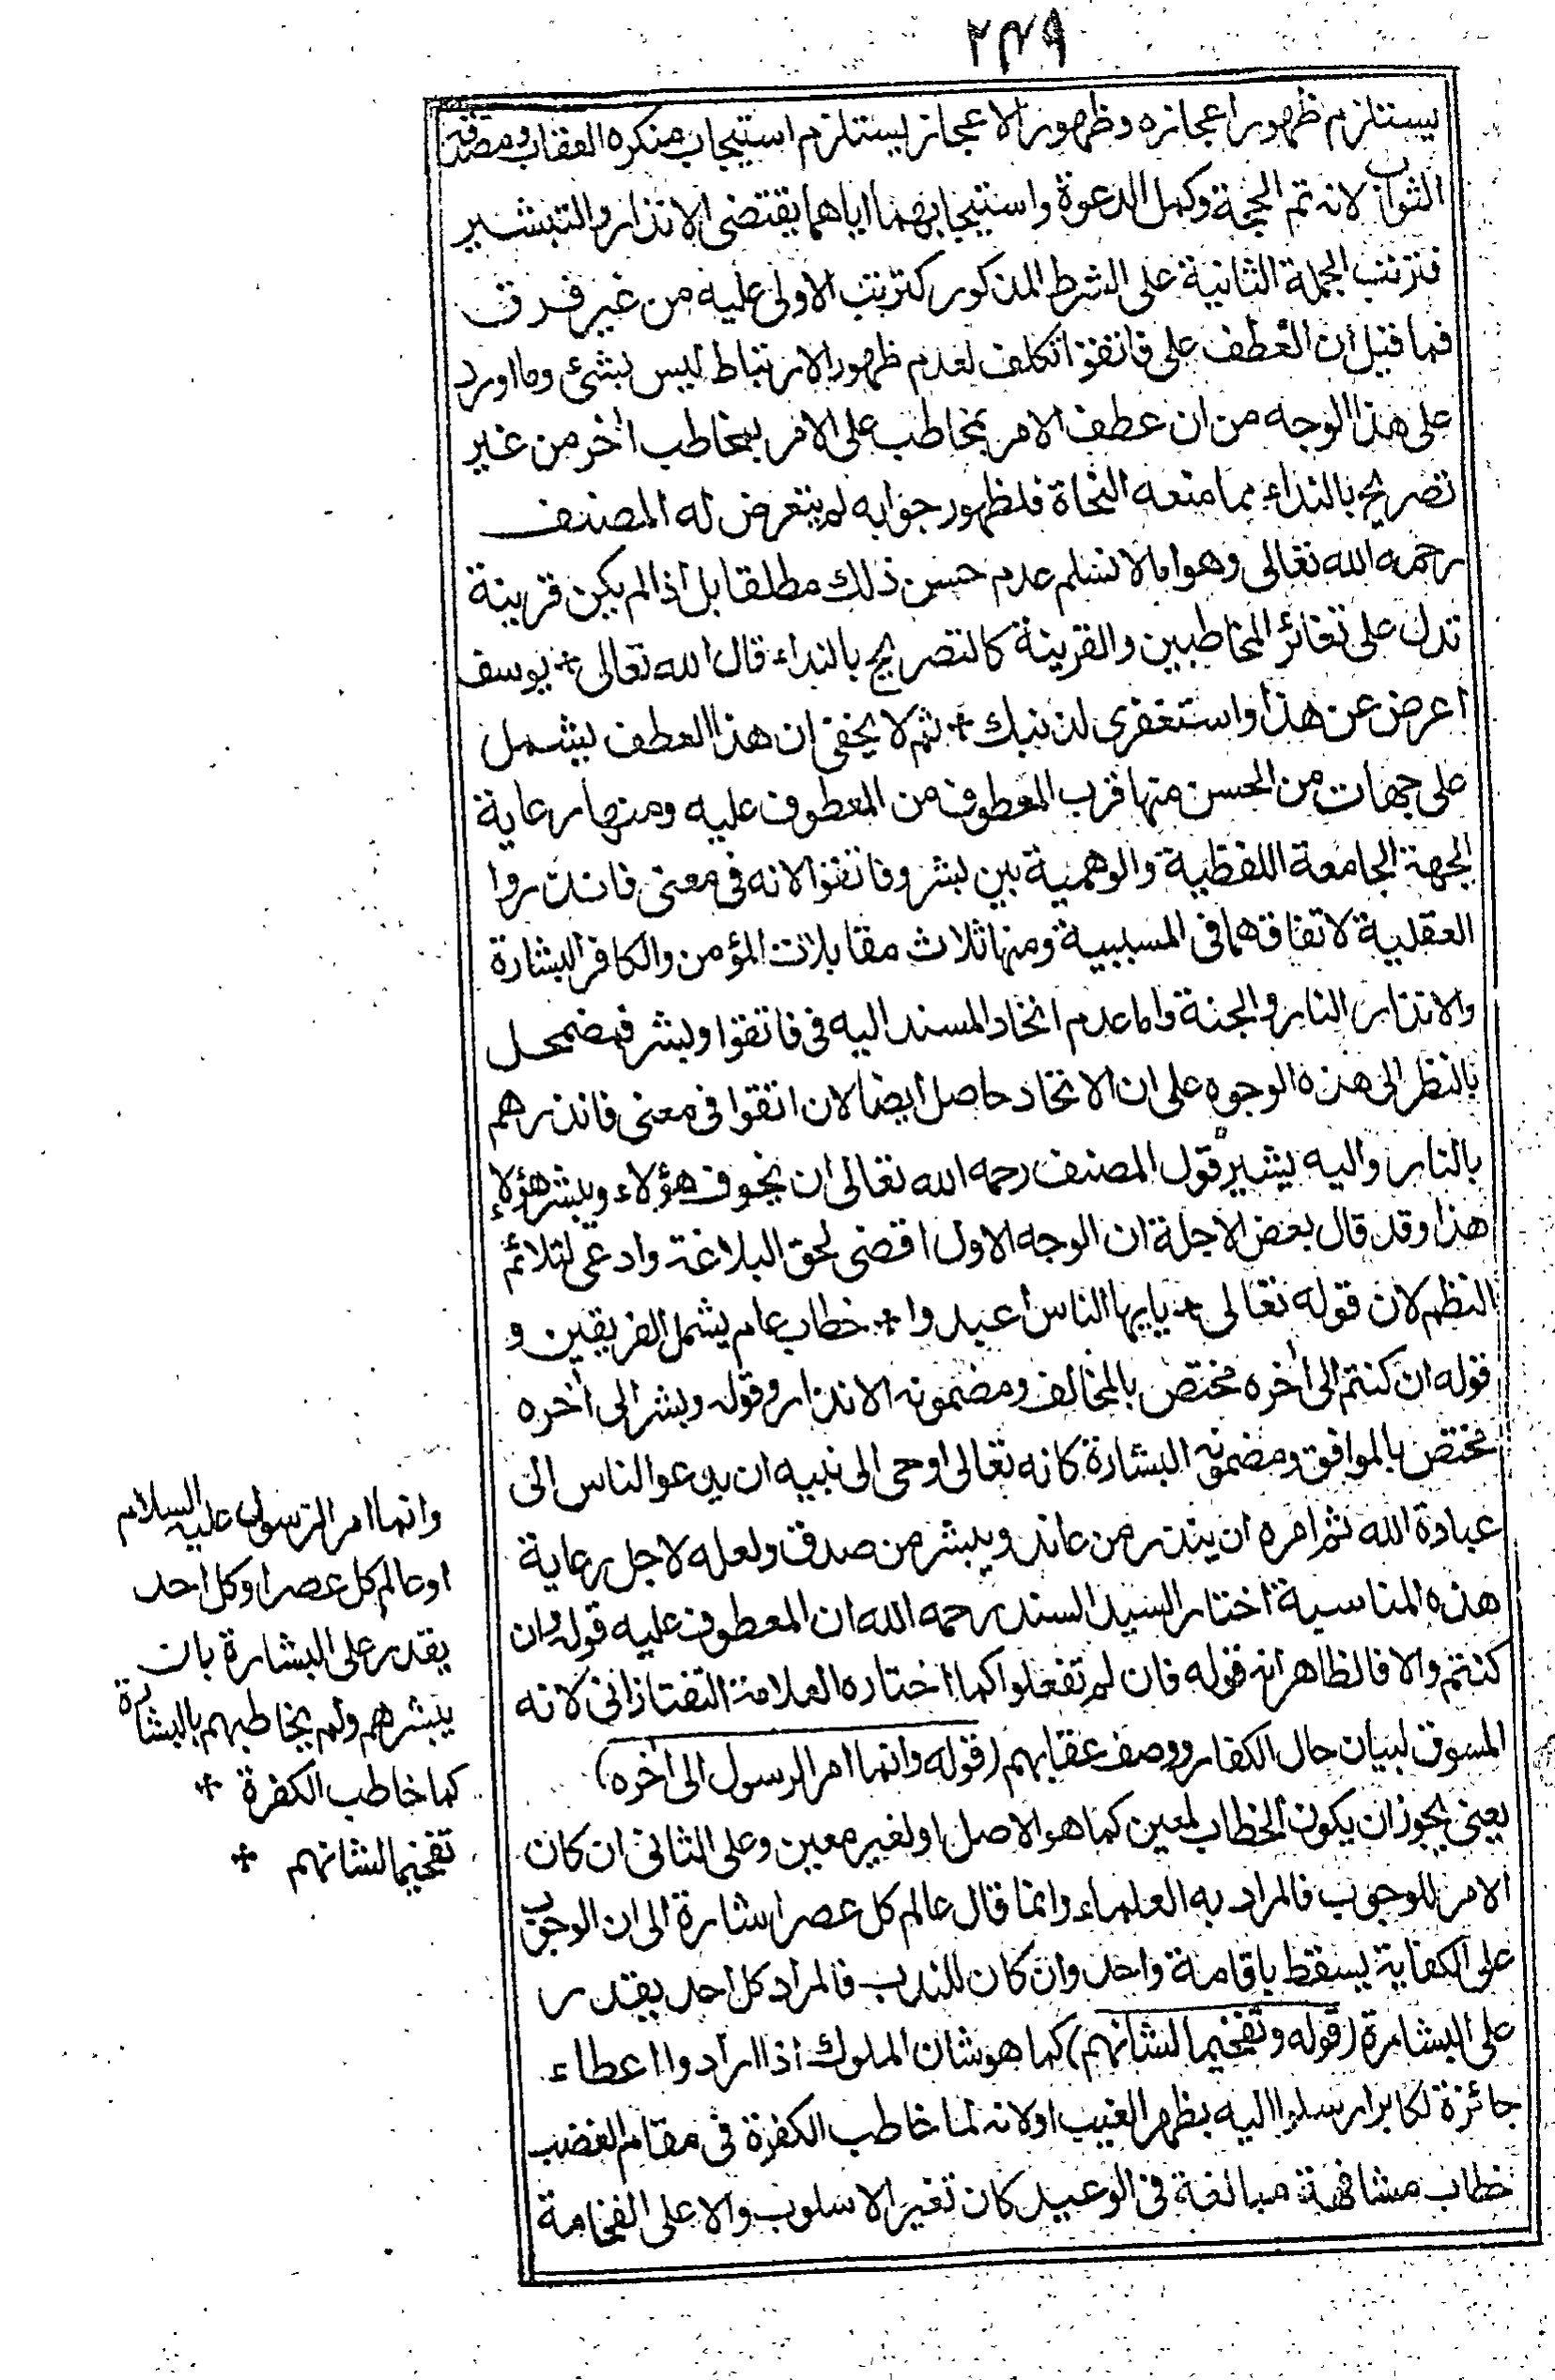 ٢٣٩
يستلزم ظهور اعجازه وظهور الاعجاز يستلزم استيجاب منكره العقاب ومصدقه
الثواب لانه تم الحجة وكمل الدعوة واستيجابهما اياهما يقتضى الانذار والتبشير
فترتب الجملة الثانية على الشرط المذكور كترتب الاولى عليه من غير فرق
فما قيل ان العطف على فاتقوا تكلف لعدم ظهور الارتباط ليس بشئ وما اورد
على هذا الوجه من ان عطف الامر بمخاطب على الامر بمخاطب اخر من غير
تصريح بالنداء مما منعه النحاة فلظهور جوابه لم يتعرض له المصنف
رحمه الله تعالى وهو انا لا نسلم عدم حسن ذلك مطلقا بل اذا لم يكن قرينة
تدل على تغائر المخاطبين والقرينة كالتصريح بالنداء قال الله تعالى * يوسف
اعرض عن هذا واستغفرى لذنبك * ثم لا يخفى ان هذا العطف يشمل
على جهات من الحسن منها قرب المعطوف من المعطوف عليه ومنها رعاية
الجهة الجامعة اللفظية والوهمية بين بشر وفاتقوا لانه فى معنى فانذروا
العقلية لاتفاقهما فى المسببية ومنها ثلاث مقابلات المؤمن والكافر البشارة
والانذار النار والجنة واما عدم اتحاد المسند اليه فى فاتقوا وبشر فمضمحل
بالنظر الى هذه الوجوه على ان الاتحاد حاصل ايضا لان اتقوا فى معنى فانذرهم
بالنار واليه يشير قول المصنف رحمه الله تعالى ان يخوف هؤلاء ويبشر هؤلاء
هذا وقد قال بعض الاجلة ان الوجه الاول اقضى لحق البلاغة وادعى لتلائم
النظم لان قوله تعالى * يايها الناس اعبدوا * خطاب عام يشمل الفريقين و
قوله ان كنتم الى اخره مختص بالمخالف ومضمونه الانذار وقوله وبشر الى اخره
مختص بالموافق ومضمونه البشارة كانه تعالى اوحى الى نبيه ان يدعو الناس الى
عبادة الله ثم امره ان ينذر من عاند ويبشر من صدق ولعله لاجل رعاية
هذه المناسبة اختار السيد السند رحمه الله ان المعطوف عليه قوله وان
كنتم والا فالظاهر انه قوله فان لم تفعلوا كما اختاره العلامة التفتازانى لانه
المسوق لبيان حال الكفار ووصف عقابهم (قوله وانما امر الرسول الى اخره)
يعنى يجوز ان يكون الخطاب لمعين كما هو الاصل او لغير معين وعلى الثانى ان كان
الامر للوجوب فالمراد به العلماء وانما قال عالم كل عصر اشارة الى ان الوجوب
على الكفاية يسقط باقامة واحد وان كان للندب فالمراد كل احد يقدر
على البشارة (قوله وتفخيما لشانهم) كما هو شان الملوك اذا ارادوا اعطاء
جائزة لكابر ارسلوا اليه بظهر الغيب او لانه لما خاطب الكفرة فى مقام الغضب
خطاب مشافهة مبالغة فى الوعيد كان تغير الاسلوب والا على الفخامة
وانما امر الرسول عليه السلام
او عالم كل عصر او كل احد
يقدر على البشارة بان
يبشرهم ولم يخاطبهم بالبشارة
كما خاطب الكفرة *
تفخيما لشانهم *